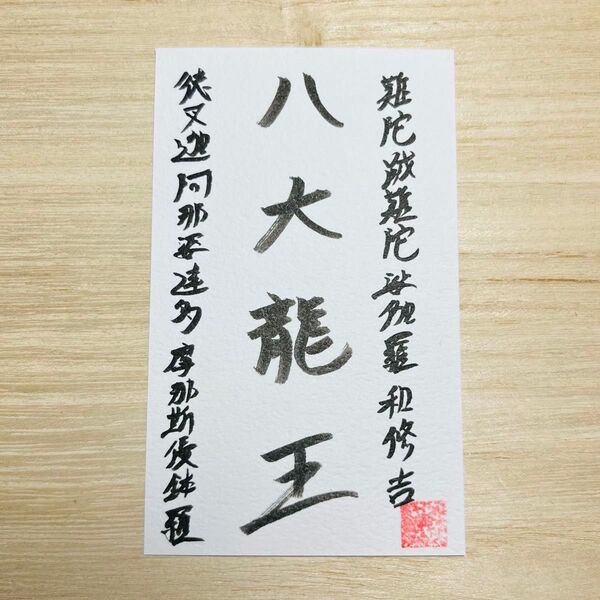 難陀 跋難陀 娑伽羅 和修吉
八大龍王
徳叉迦 阿那婆達多 摩那斯 優鉢羅